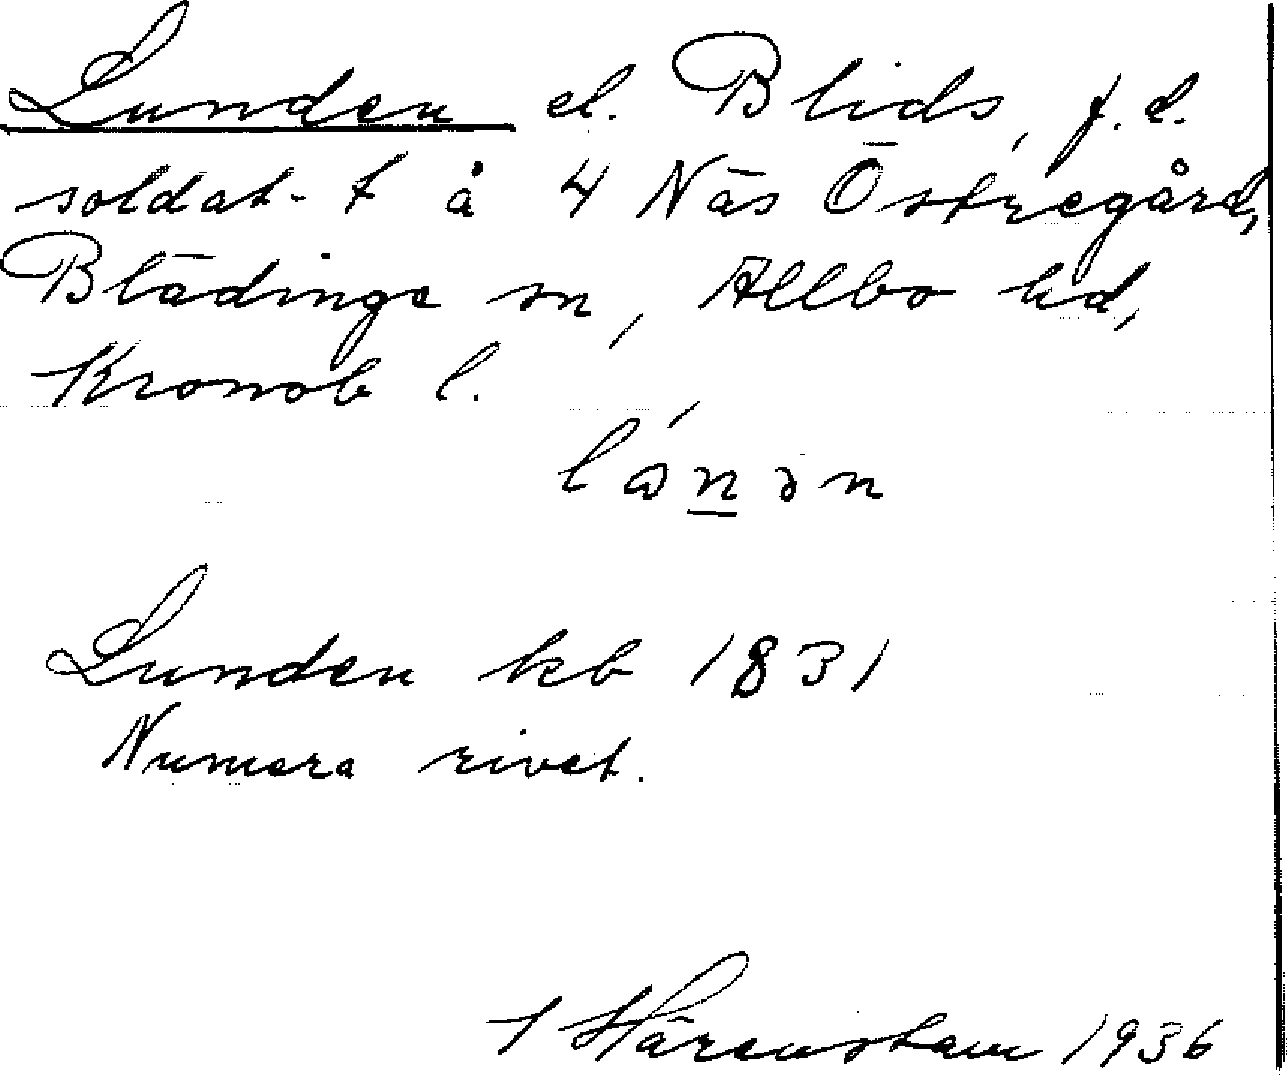 Lunden el. Blids, f.d.
soldat-t å 4 Näs Östregård,
Blädinge sn, Allbo hd,
Kronob l.
Lunden kb 1831
Numera rivet.
T Härenstam 1936